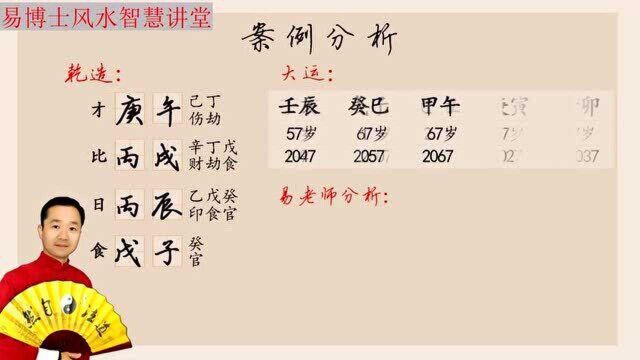 易博士风水智慧讲堂
案例分析
乾造：
才 庚 午 己丁
伤劫
比 丙 戌 辛丁戊
财劫食
日 丙 辰 乙戊癸
印食官
食 戊 子 癸
官
大运：
壬辰 癸巳 甲午 寅 卯
57岁 67岁 67岁 7岁 岁
2047 2057 2067 027 037
易老师分析：
自